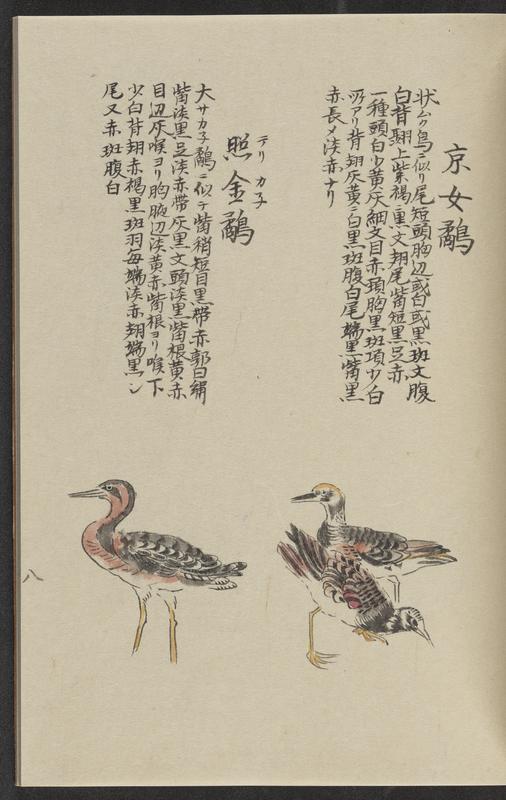 京女鷸
状ムク鳥ニ似リ尾短頭胸辺或白或黒斑文腹
白背翮上紫褐ニ黒文翅尾觜短黒足赤
一種頭白少黄灰細文目赤頚胸黒斑項少白
アリ背翅灰黄ニ白黒斑腹白尾端黒觜黒
赤長メ淡赤ナリ
テリ カ子
照金鷸
大サカ子鷸ニ似テ觜稍短目黒帯赤郭白繝
觜淡黒足淡赤帯灰黒文頭淡黒觜根黄赤
目辺灰喉ヨリ胸腋辺淡黄赤觜根ヨリ喉下
少白背翅赤褐黒斑羽每端淡赤翅端黒シ
尾又赤斑腹白
八